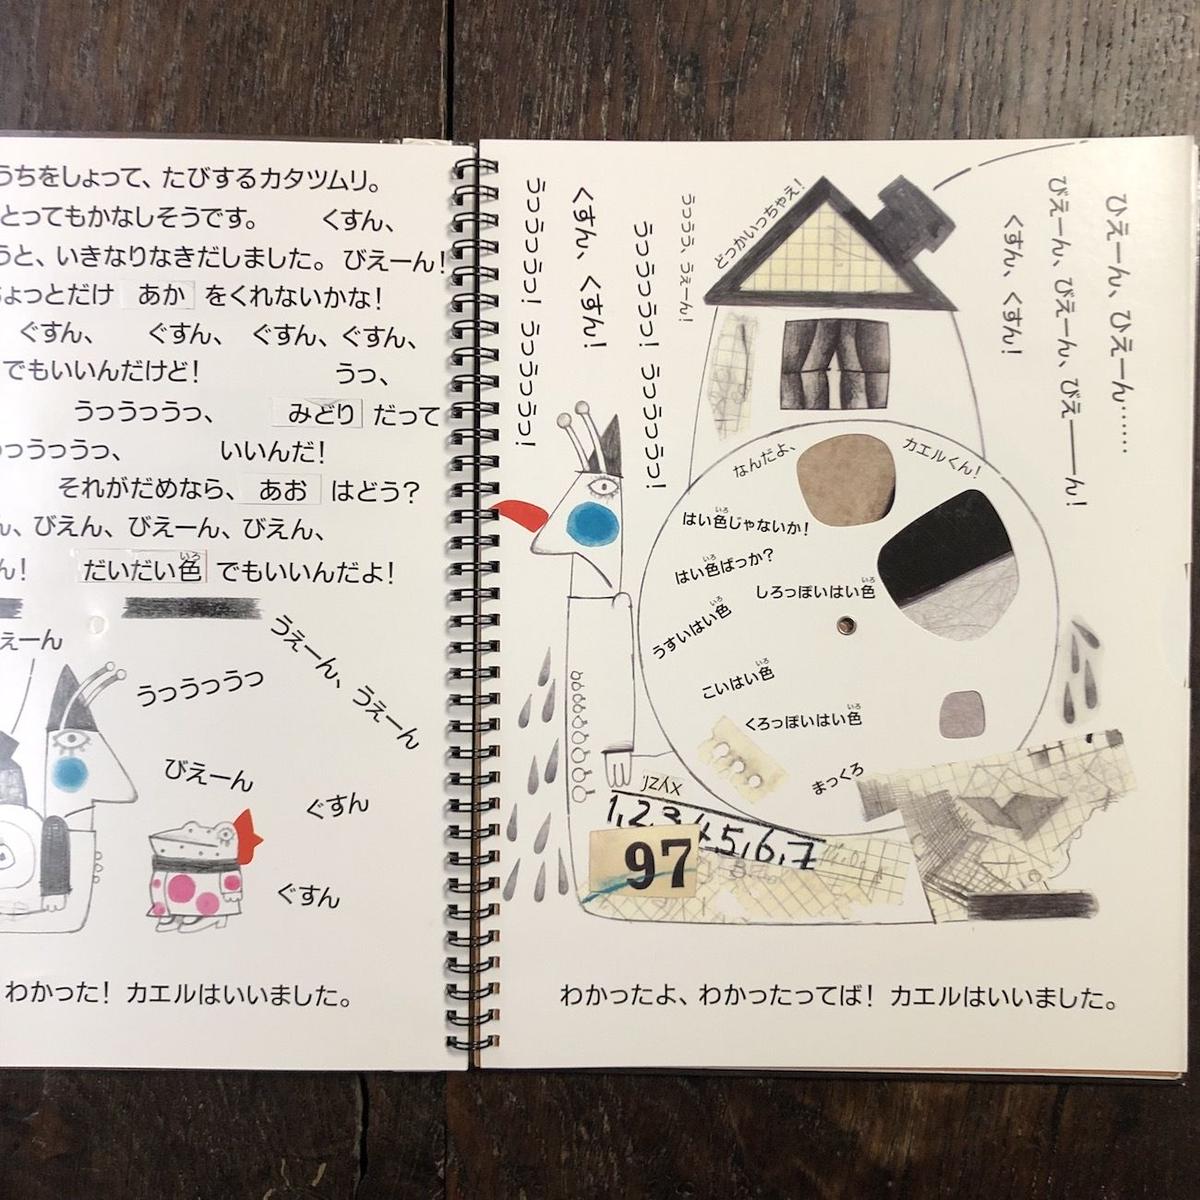 うちをしょって、たびするカタツムリ。
とってもかなしそうです。 くすん、
うと、いきなりなきだしました。 びえーん!
ちょっとだけ あか をくれないかな!
ぐすん、 ぐすん、 ぐすん、ぐすん、
でもいいんだけど! うっ、
うっうっうっ、 みどり だって
っうっうっ、 いいんだ!
それがだめなら、 あお はどう?
ん、びえん、びえーん、びえん、
ん! だいだい色 でもいいんだよ!
いろ
えーん
うえーん、うえーん
うっうっうっ
びえーん
ぐすん
ぐすん
わかった! カエルはいいました。
ひえーん、ひえーん……
びえーん、びえーん、びえ――ん!
くすん、くすん!
どっかいっちゃえ!
うっうっ、うえーん!
うっうっうっ! うっうっうっ!
くすん、くすん!
うっうっうっ! うっうっうっ!
なんだよ、
カエルくん!
はい色じゃないか!
いろ
はい色ばっか?
いろ
しろっぽいはい色
いろ
うすいはい色
いろ
こいはい色
いろ
くろっぽいはい色
いろ
まっくろ
1,2,3,4,5,6,7
97
わかったよ、わかったってば! カエルはいいました。